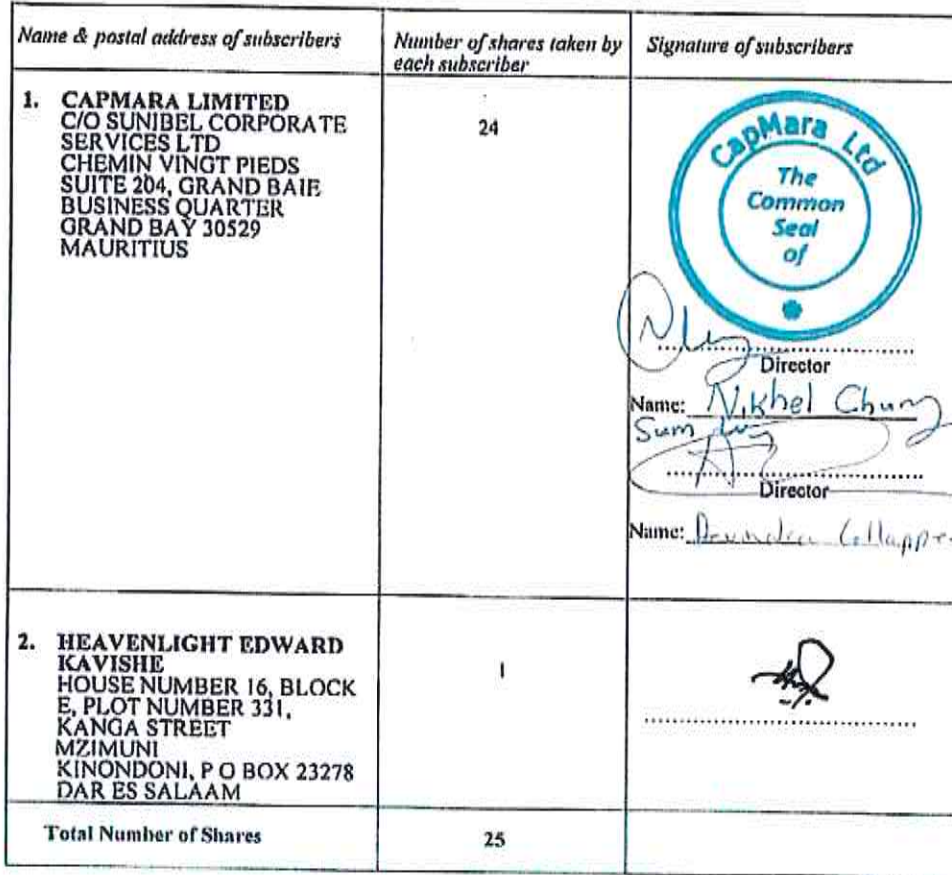 Name & postal address of subscribers
Number of shares taken by
each subscriber
Signature of subscribers
1. CAPMARA LIMITED
C/O SUNIBEL CORPORATE
SERVICES LTD
CHEMIN VINGT PIEDS
SUITE 204, GRAND BAIE
BUSINESS QUARTER
GRAND BAY 30529
MAURITIUS
24
CapMara Ltd
The
Common
Seal
of
Director
Name: Nikhel Chung
Sum
Director
Name:
2. HEAVENLIGHT EDWARD
KAVISHE
HOUSE NUMBER 16, BLOCK
E, PLOT NUMBER 331,
KANGA STREET
MZIMUNI
KINONDONI, P O BOX 23278
DAR ES SALAAM
1
Total Number of Shares
25